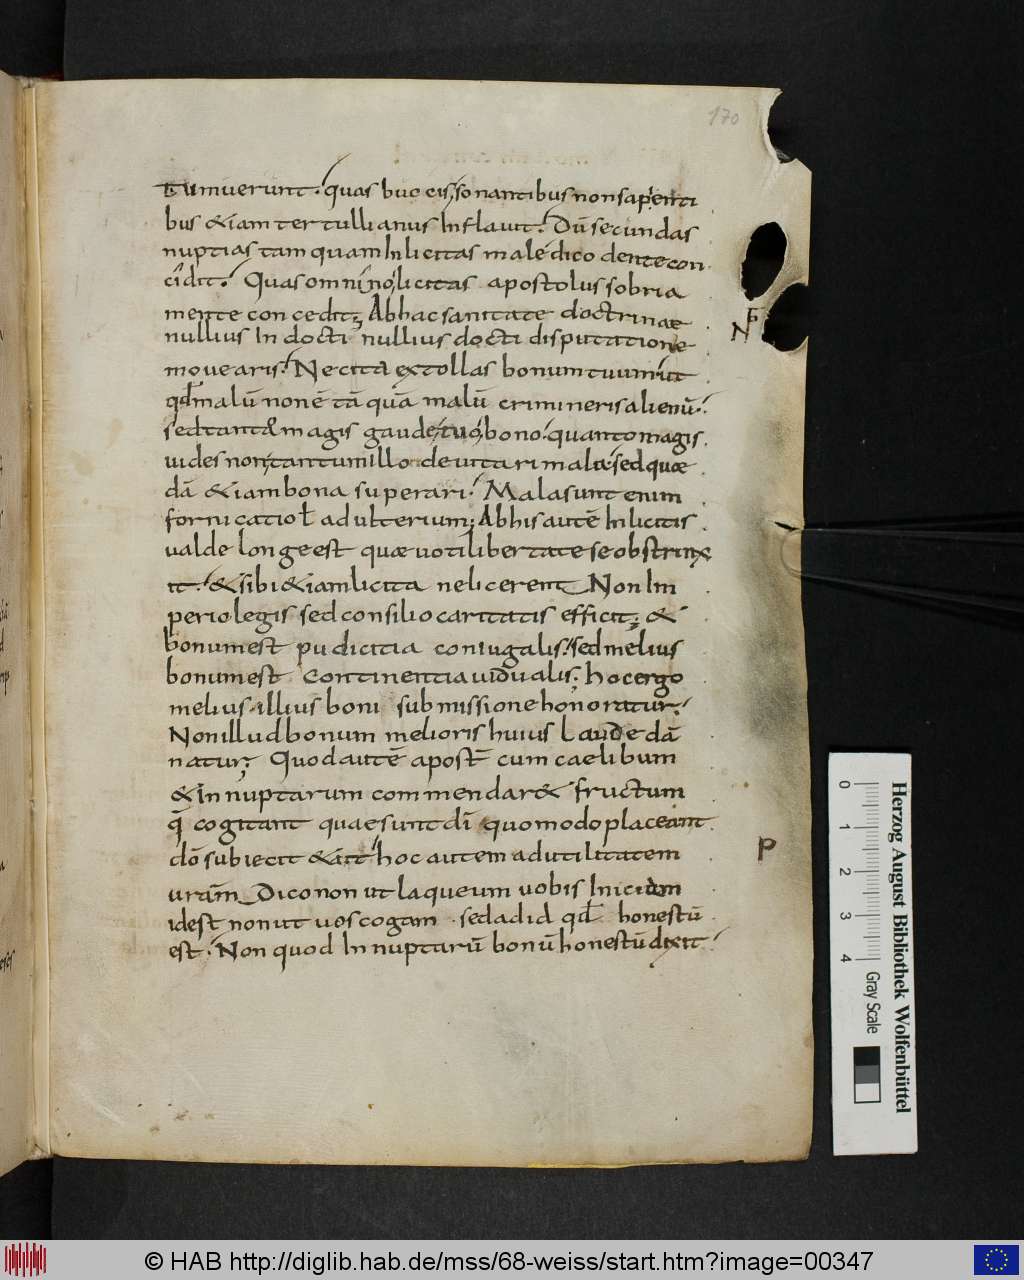 170
tumuerunt. quas buccis sonantibus non sapienti
bus & iam tertullianus Inflauit. Dū secundas
nuptias tamquam Inlicitas maledico dente con
cidit. Quas omnino licitas apostolus sobria
mente concedit; Ab hac sanitate doctrinae
nullius Indocti nullius docti disputatione
mouearis. Nec ita extollas bonum tuum ut
qđ malū non ē tā quā malū crimineris alienū.
sed tanto magis gaude tuo bono. quanto magis
uides non tantum illo deuitari mala sed quae
dā & iam bona superari. Mala sunt enim
fornicatio ł adulterium; Ab his autē Inlicitis
ualde longe est quae uoti libertate se obstrinx
it. & sibi & iam licita ne licerent Non Im
perio legis sed consilio caritatis efficit; &
bonum est pudicitia coniugalis. sed melius
bonum est continentia uidualis; hoc ergo
melius illius boni submissione honoratur.
Non illud bonum melioris huius laude dā
natur; Quod autē apost̄ cum caelibum
& Innuptarum commendar& fructum
q̄ cogitant quae sunt dn̄i quomodo placeant
dō subiecit & ait hoc autem ad utilitatem
uram̄ Dico non ut laqueum uobis Iniciam
idest non ut uos cogam sed ad id qđ honestū
est. Non quod Innuptarū bonū honestū dixit
P
0 1 2 3 4
Gray Scale
Herzog August Bibliothek Wolfenbüttel
© HAB http://diglib.hab.de/mss/68-weiss/start.htm?image=00347